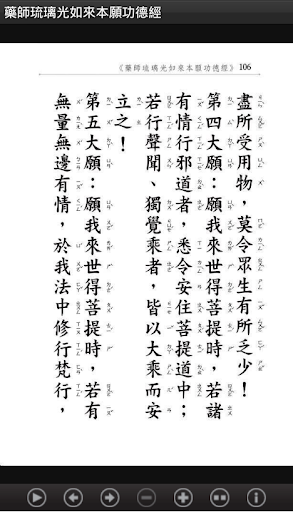 藥師琉璃光如來本願功德經
《藥師琉璃光如來本願功德經》 106
盡所受用物，莫令眾生有所乏少！
第四大願：願我來世得菩提時，若諸
有情行邪道者，悉令安住菩提道中；
若行聲聞、獨覺乘者，皆以大乘而安
立之！
第五大願：願我來世得菩提時，若有
無量無邊有情，於我法中修行梵行，